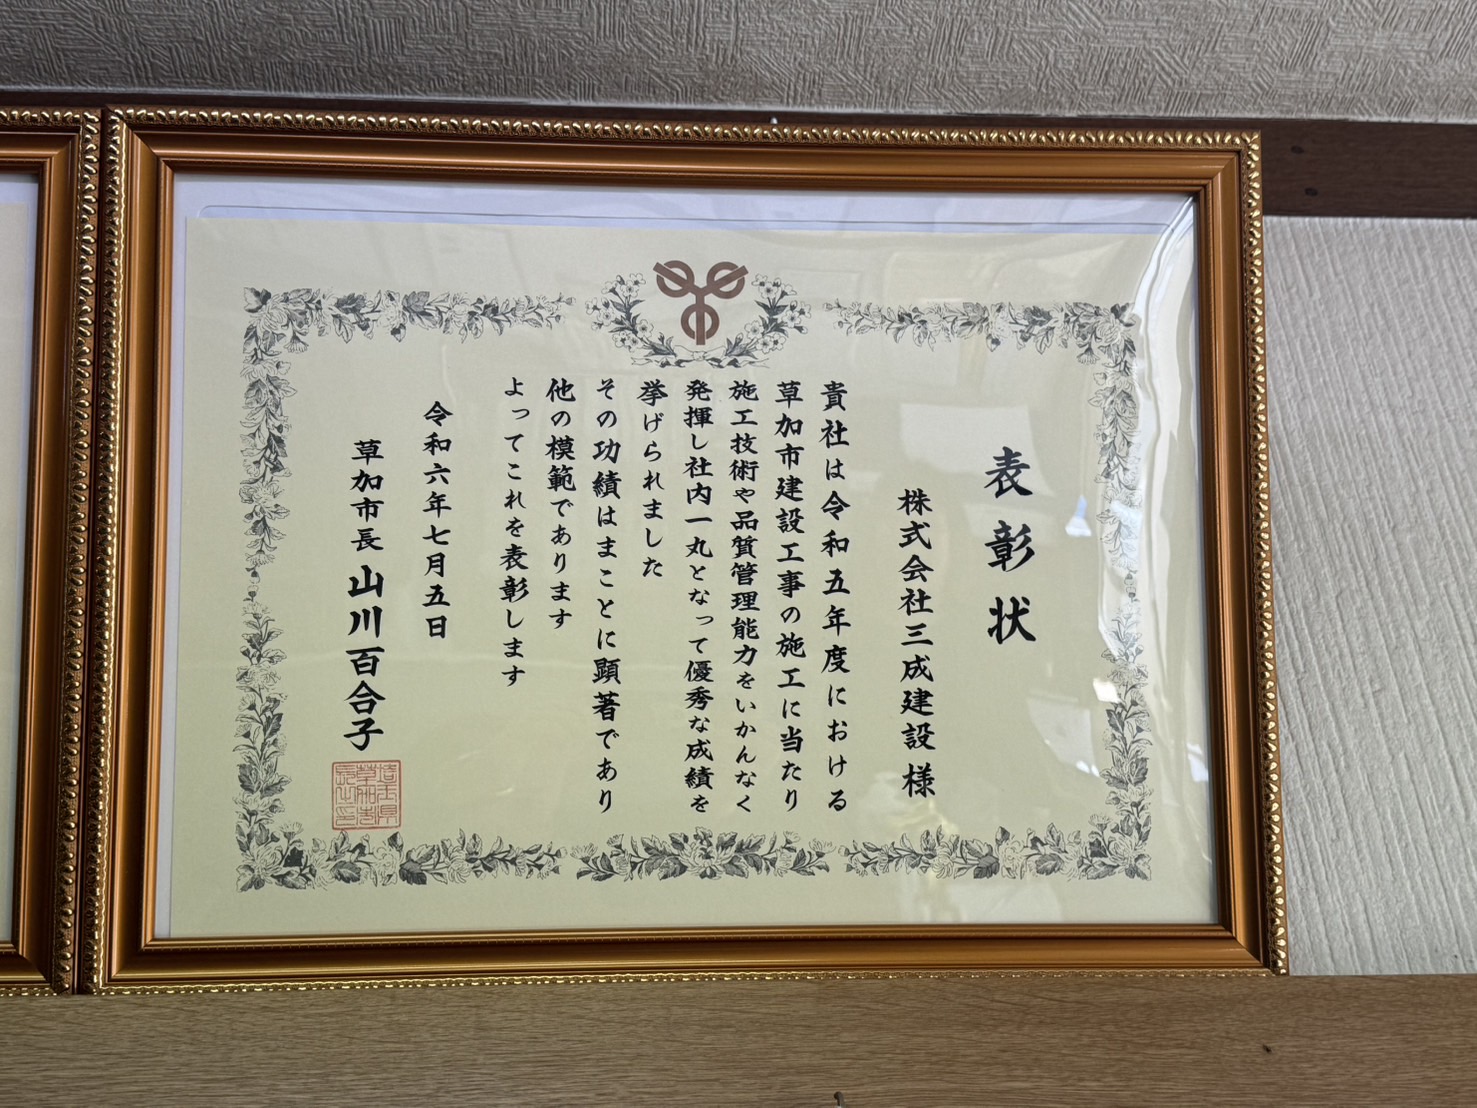 表彰状
株式会社三成建設様
貴社は令和五年度における
草加市建設工事の施工に当たり
施工技術や品質管理能力をいかんなく
発揮し社内一丸となって優秀な成績を
挙げられました
その功績はまことに顕著であり
他の模範であります
よってこれを表彰します
令和六年七月五日
草加市長 山川百合子
埼玉県
草加市
長之印